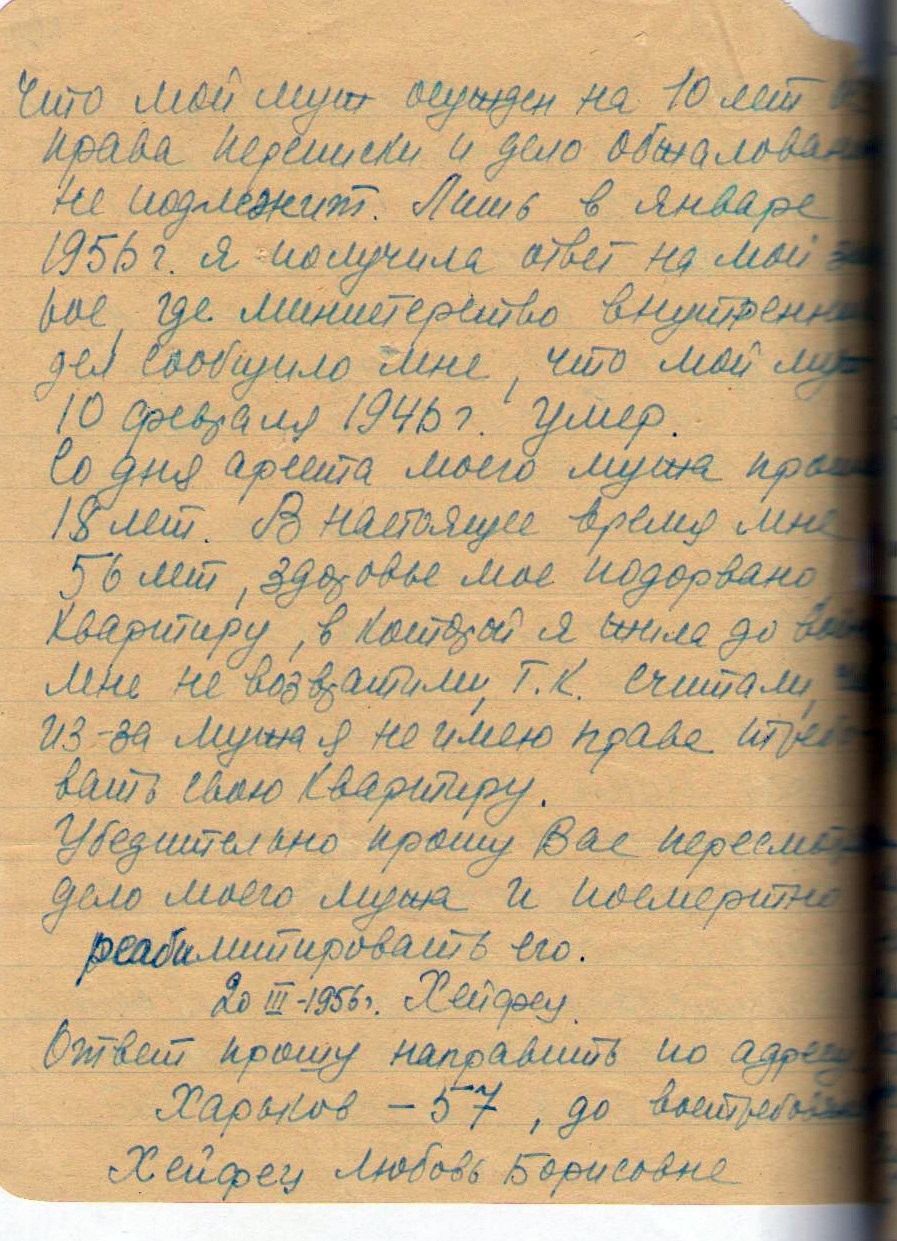 что мой муж осужден на 10 лет
права переписки и дело обжалован
не подлежит. Лишь в январе
1956 г. я получила ответ на мой
вое, где министерство внутренн
дел сообщило мне, что мой муж
10 февраля 1946 г. умер.
Со дня ареста моего мужа прош
18 лет. В настоящее время мне
56 лет, здоровье мое подорвано,
квартиру, в которой я жила до вой
мне не возвратили, т.к. считали,
из-за мужа я не имею права
вать свою квартиру.
Убедительно прошу Вас пересмот
дело моего мужа и посмертно
реабилитировать его.
20 III-1956г. Хейфец.
Ответ прошу направить по адресу
Харьков – 57, до востребов
Хейфец Любовь Борисовне